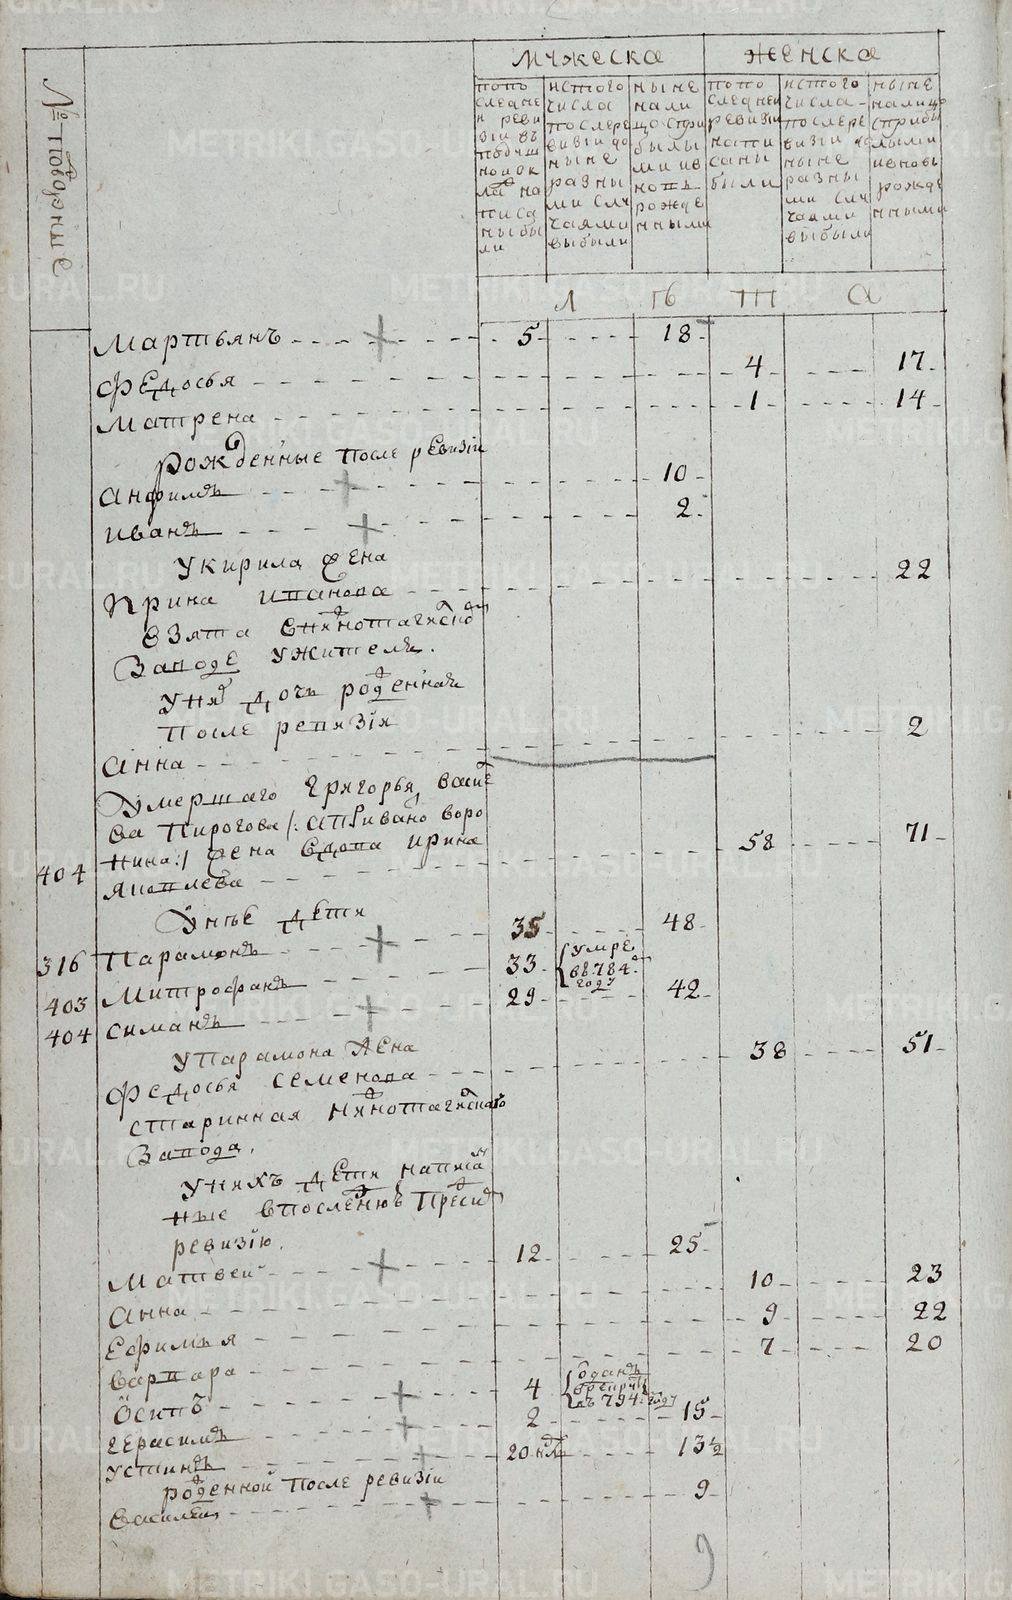 № подворные
мужеска
женска
по по
следне
й реви
зіи въ
подуш
ной ок
ладъ на
писа
ны бы
ли
ис того
числа
по слере
визіи до
ныне
разны
ми слу
чаями
выбыли
ныне
на ли
цо с при
былы
ми и в
новь
рожде
нными
по по
следней
ревизіи
напи
саны
были
ис того
числа
по сле ре
визіи до
ныне
разны
ми слу
чаями
выбыли
ныне
на лицо
с прибы
лыми
и вновь
рожде
нными
л е т а
Мартьянъ 5 18
Федосья 4 17
Матрена 1 14
рожденные после ревизіи
Анфилъ 10
Иванъ 2
у кирила жена
Ирина Иванова 22
взята в нижнотагилско
заводе у жителя.
у них дочь рожденная
после ревизія
Анна 2
Умершаго Григорья васил
ева Пирогова /: а по ивано воро
нина :/ жена вдова ирина
404 Яковлева 58 71
У нее дети
316 Парамонъ 35 48
403 Митрофанъ 33 умре в 784 году
404 Симанъ 29 42
у Парамона жена
Федосья семенова 38 51
старинная нижнотагилскаго
завода.
у нихъ дети написа
ные в последнюю пред сим
ревизію.
Матвей 12 25
Анна 10 23
Ефимья 9 22
Варвара 7 20
Осипъ 4 отданъ в рекруты въ 794 году
Герасимъ 2 15
Устинъ 20 нд 13 ½
рожденной после ревизіи
Василей 9
9
METRIKI.GASO-URAL.RU